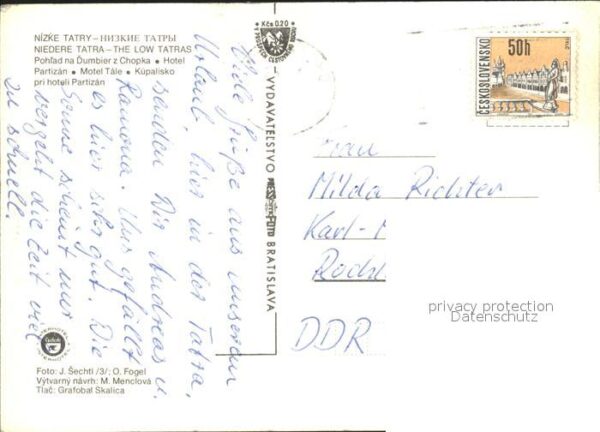 NÍZKE TATRY – НИЗКИЕ ТАТРЫ
NIEDERE TATRA – THE LOW TATRAS
Pohľad na Ďumbier z Chopka • Hotel
Partizán • Motel Tále • Kúpalisko
pri hoteli Partizán
Viele Grüße aus unserem
Urlaub, hier in der Tatra,
senden Dir Andreas u.
Ramona. Uns gefällt
es hier sehr gut. Die
Sonne scheint nur
vergeht die Zeit viel
zu schnell.
INTERHOTEL
Foto: J. Šechtl /3/; O. Fogel
Výtvarný návrh: M. Menclová
Tlač: Grafobal Skalica
Kčs 0.20
V PROSPECH CESTOVNÉHO RUCHU
VYDAVATEĽSTVO PRESSFOTO BRATISLAVA
50h
ČESKOSLOVENSKO
Frau
Milda Richter
Karl-
DDR
privacy protection
Datenschutz